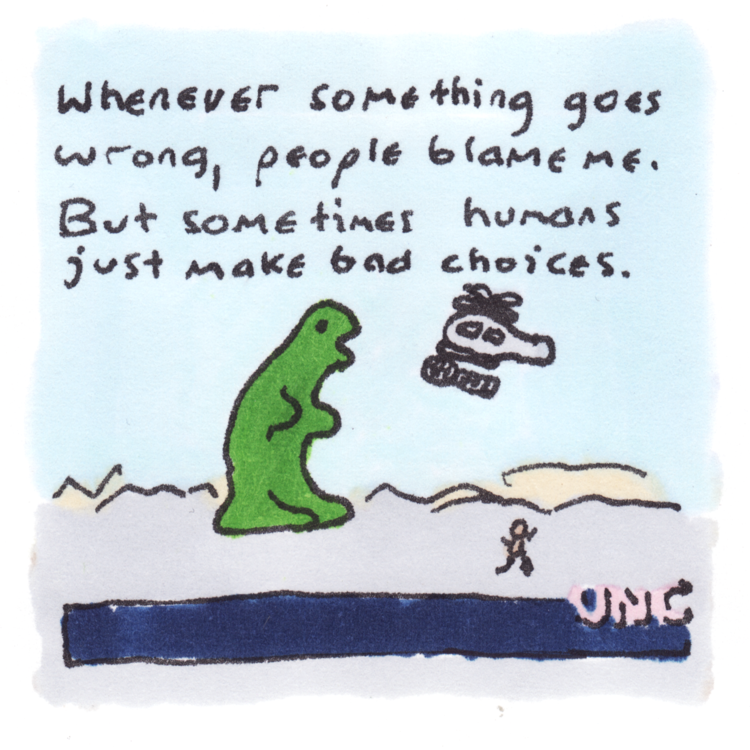 Whenever something goes
wrong, people blame me.
But sometimes humans
just make bad choices.
UNC